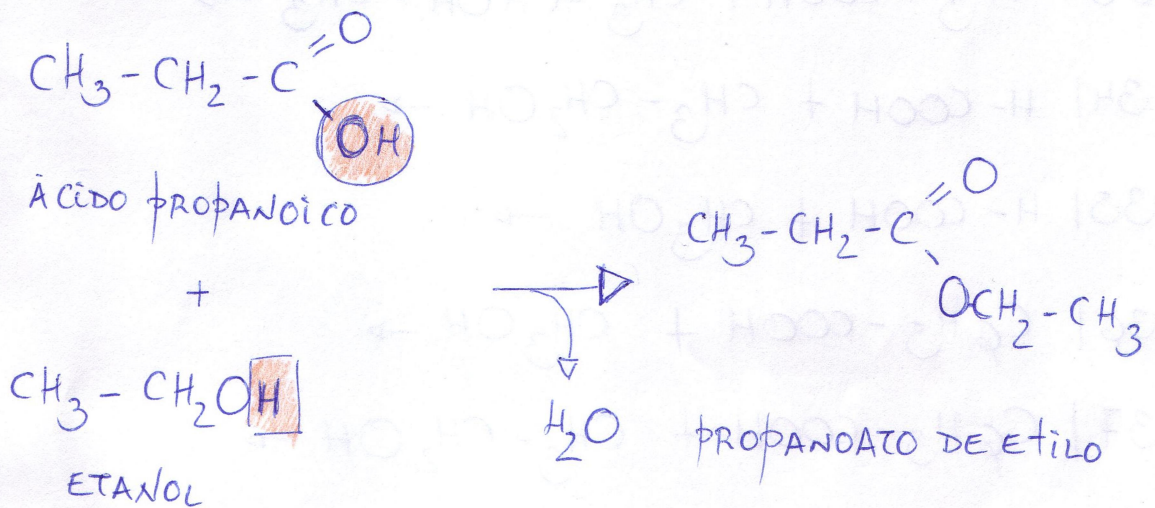 O
CH₃-CH₂-C
OH
ÁCIDO PROPANOICO
+
CH₃-CH₂OH
ETANOL
H₂O
O
CH₃-CH₂-C
OCH₂-CH₃
PROPANOATO DE ETILO